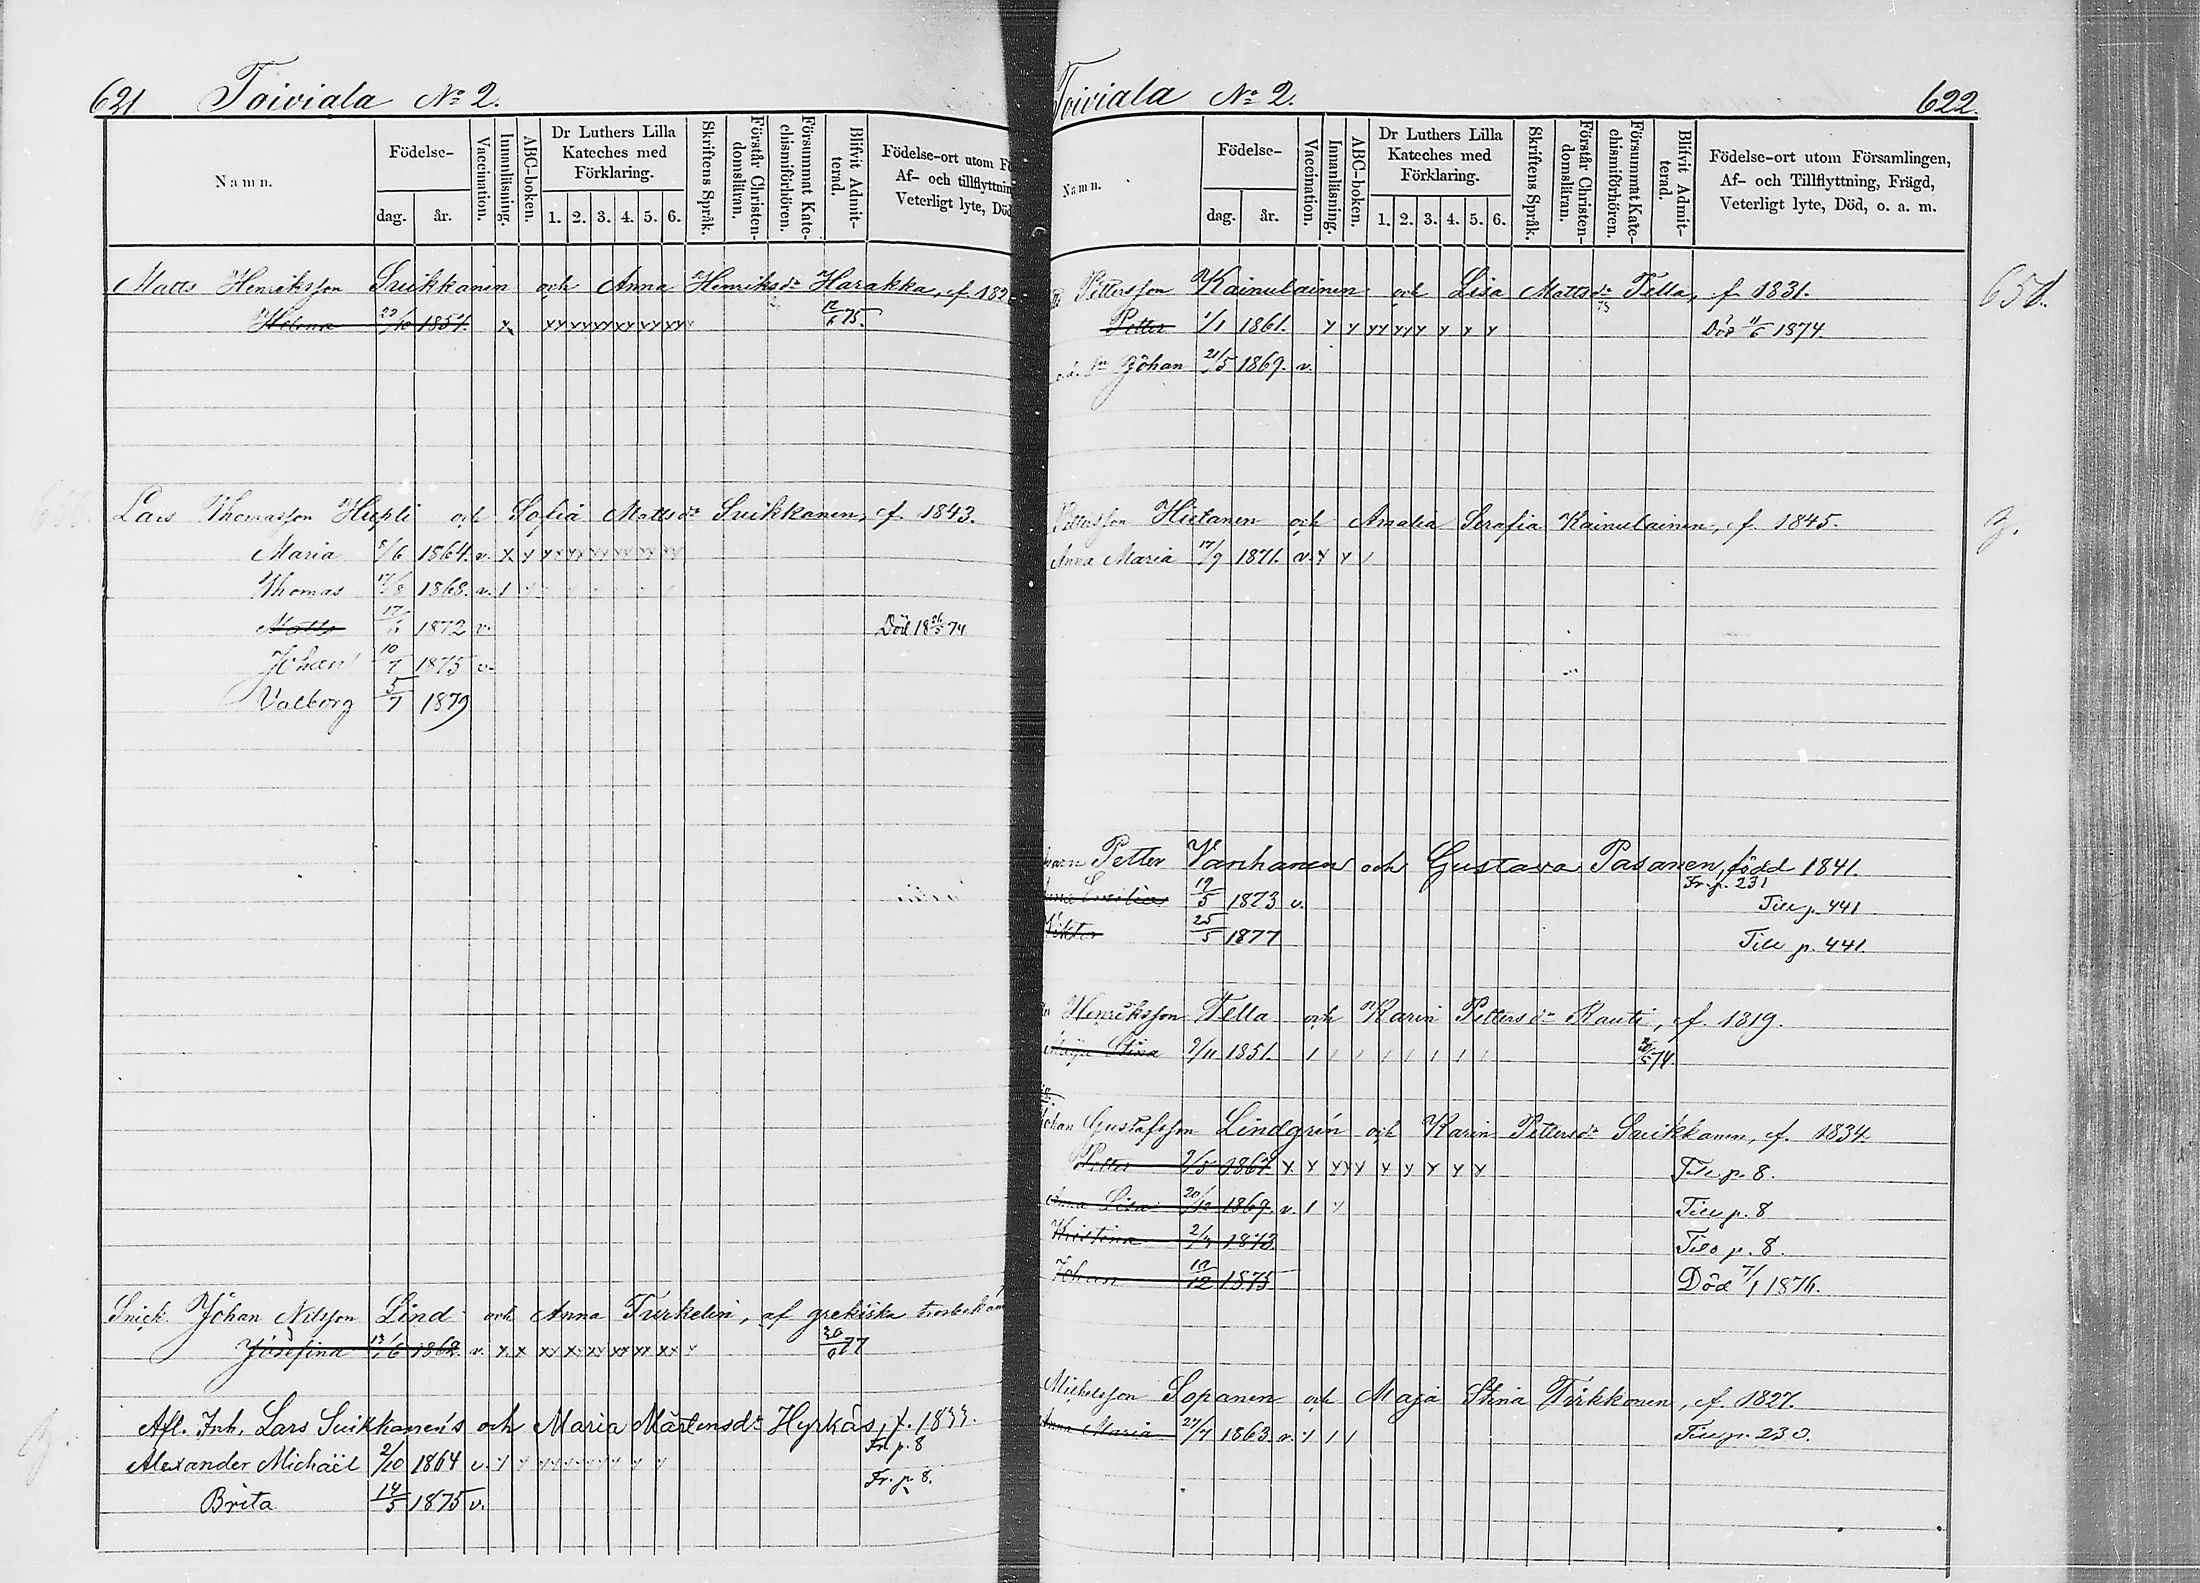 621 Toiviala No 2.
Namn.
Födelse-
dag. år.
Vaccination.
Innanläsning.
ABC-boken.
Dr Luthers Lilla Kateches med Förklaring.
1. 2. 3. 4. 5. 6.
Skriftens Språk.
Förstår Christen-domsläran.
Försummat Kate-chismiförhören.
Blifvit Admit-terad.
Födelse-ort utom
Af- och tillflyttnin
Veterligt lyte, Död
Matts Henriksson Suikkanen och Anna Henriksdr Harakka, f. 182
Helena 1857. x xx xx xx xx xx xx 75.
Lars Thomasson Hupli och Sofia Mattsdr Suikkanen, f. 1843.
Maria 8/6 1864. v. x x x xx xx xx xx xx
Thomas 17/8 1868. v.
Matts 17/3 1872 v.
Död 18 74
Johan 10/7 1875 v.
Valborg 5/7 1879
Snick. Johan Nilsson Lind och Anna Turkelin, af grekiska
Josefina 1862. v. x x xx xx xx xx xx xx 77
Afl. Inh. Lars Suikkanen's och Maria Mårtensdr Hyrkäs, f. 1833.
Fr. p. 8
Alexander Michaël 2/10 1864 v.
Fr. p. 8.
Brita 14/5 1875 v.
Toiviala No 2. 622.
Namn.
Födelse-
dag. år.
Vaccination.
Innanläsning.
ABC-boken.
Dr Luthers Lilla Kateches med Förklaring.
1. 2. 3. 4. 5. 6.
Skriftens Språk.
Förstår Christen-domsläran.
Försummat Kate-chismiförhören.
Blifvit Admit-terad.
Födelse-ort utom Församlingen,
Af- och Tillflyttning, Frägd,
Veterligt lyte, Död, o. a. m.
Pettersson Kainulainen och Lisa Mattsdr Tella, f. 1831.
651.
Petter 1/1 1861. Död 11/6 1874.
Johan 21/5 1869. v.
Pettersson Hietanen och Amalia Serafia Kainulainen, f. 1845.
Anna Maria 17/9 1871. v.
Petter Vanhanen och Gustava Pasanen, född 1841.
Fr. p. 231
19/5 1873 v. Till p. 441
Viktor 25/5 1877 Till p. 441.
Henriksson Tella och Karin Pettersdr Rauti, f. 1819.
Maja Stina 9/11 1851. 74.
Johan Gustafsson Lindgrén och Karin Pettersdr Suikkanen, f. 1834.
Petter 9/5 1867 x x xxx x x x x x Till p. 8.
Anna Lisa 20/12 1869. v. Till p. 8
Kristina 1873 Till p. 8.
Johan 10/12 1875 Död 7/1 1876.
Michelsson Sopanen och Maja Stina Tirkkonen, f. 1827.
Anna Maria 27/7 1863 v. Till p. 230.